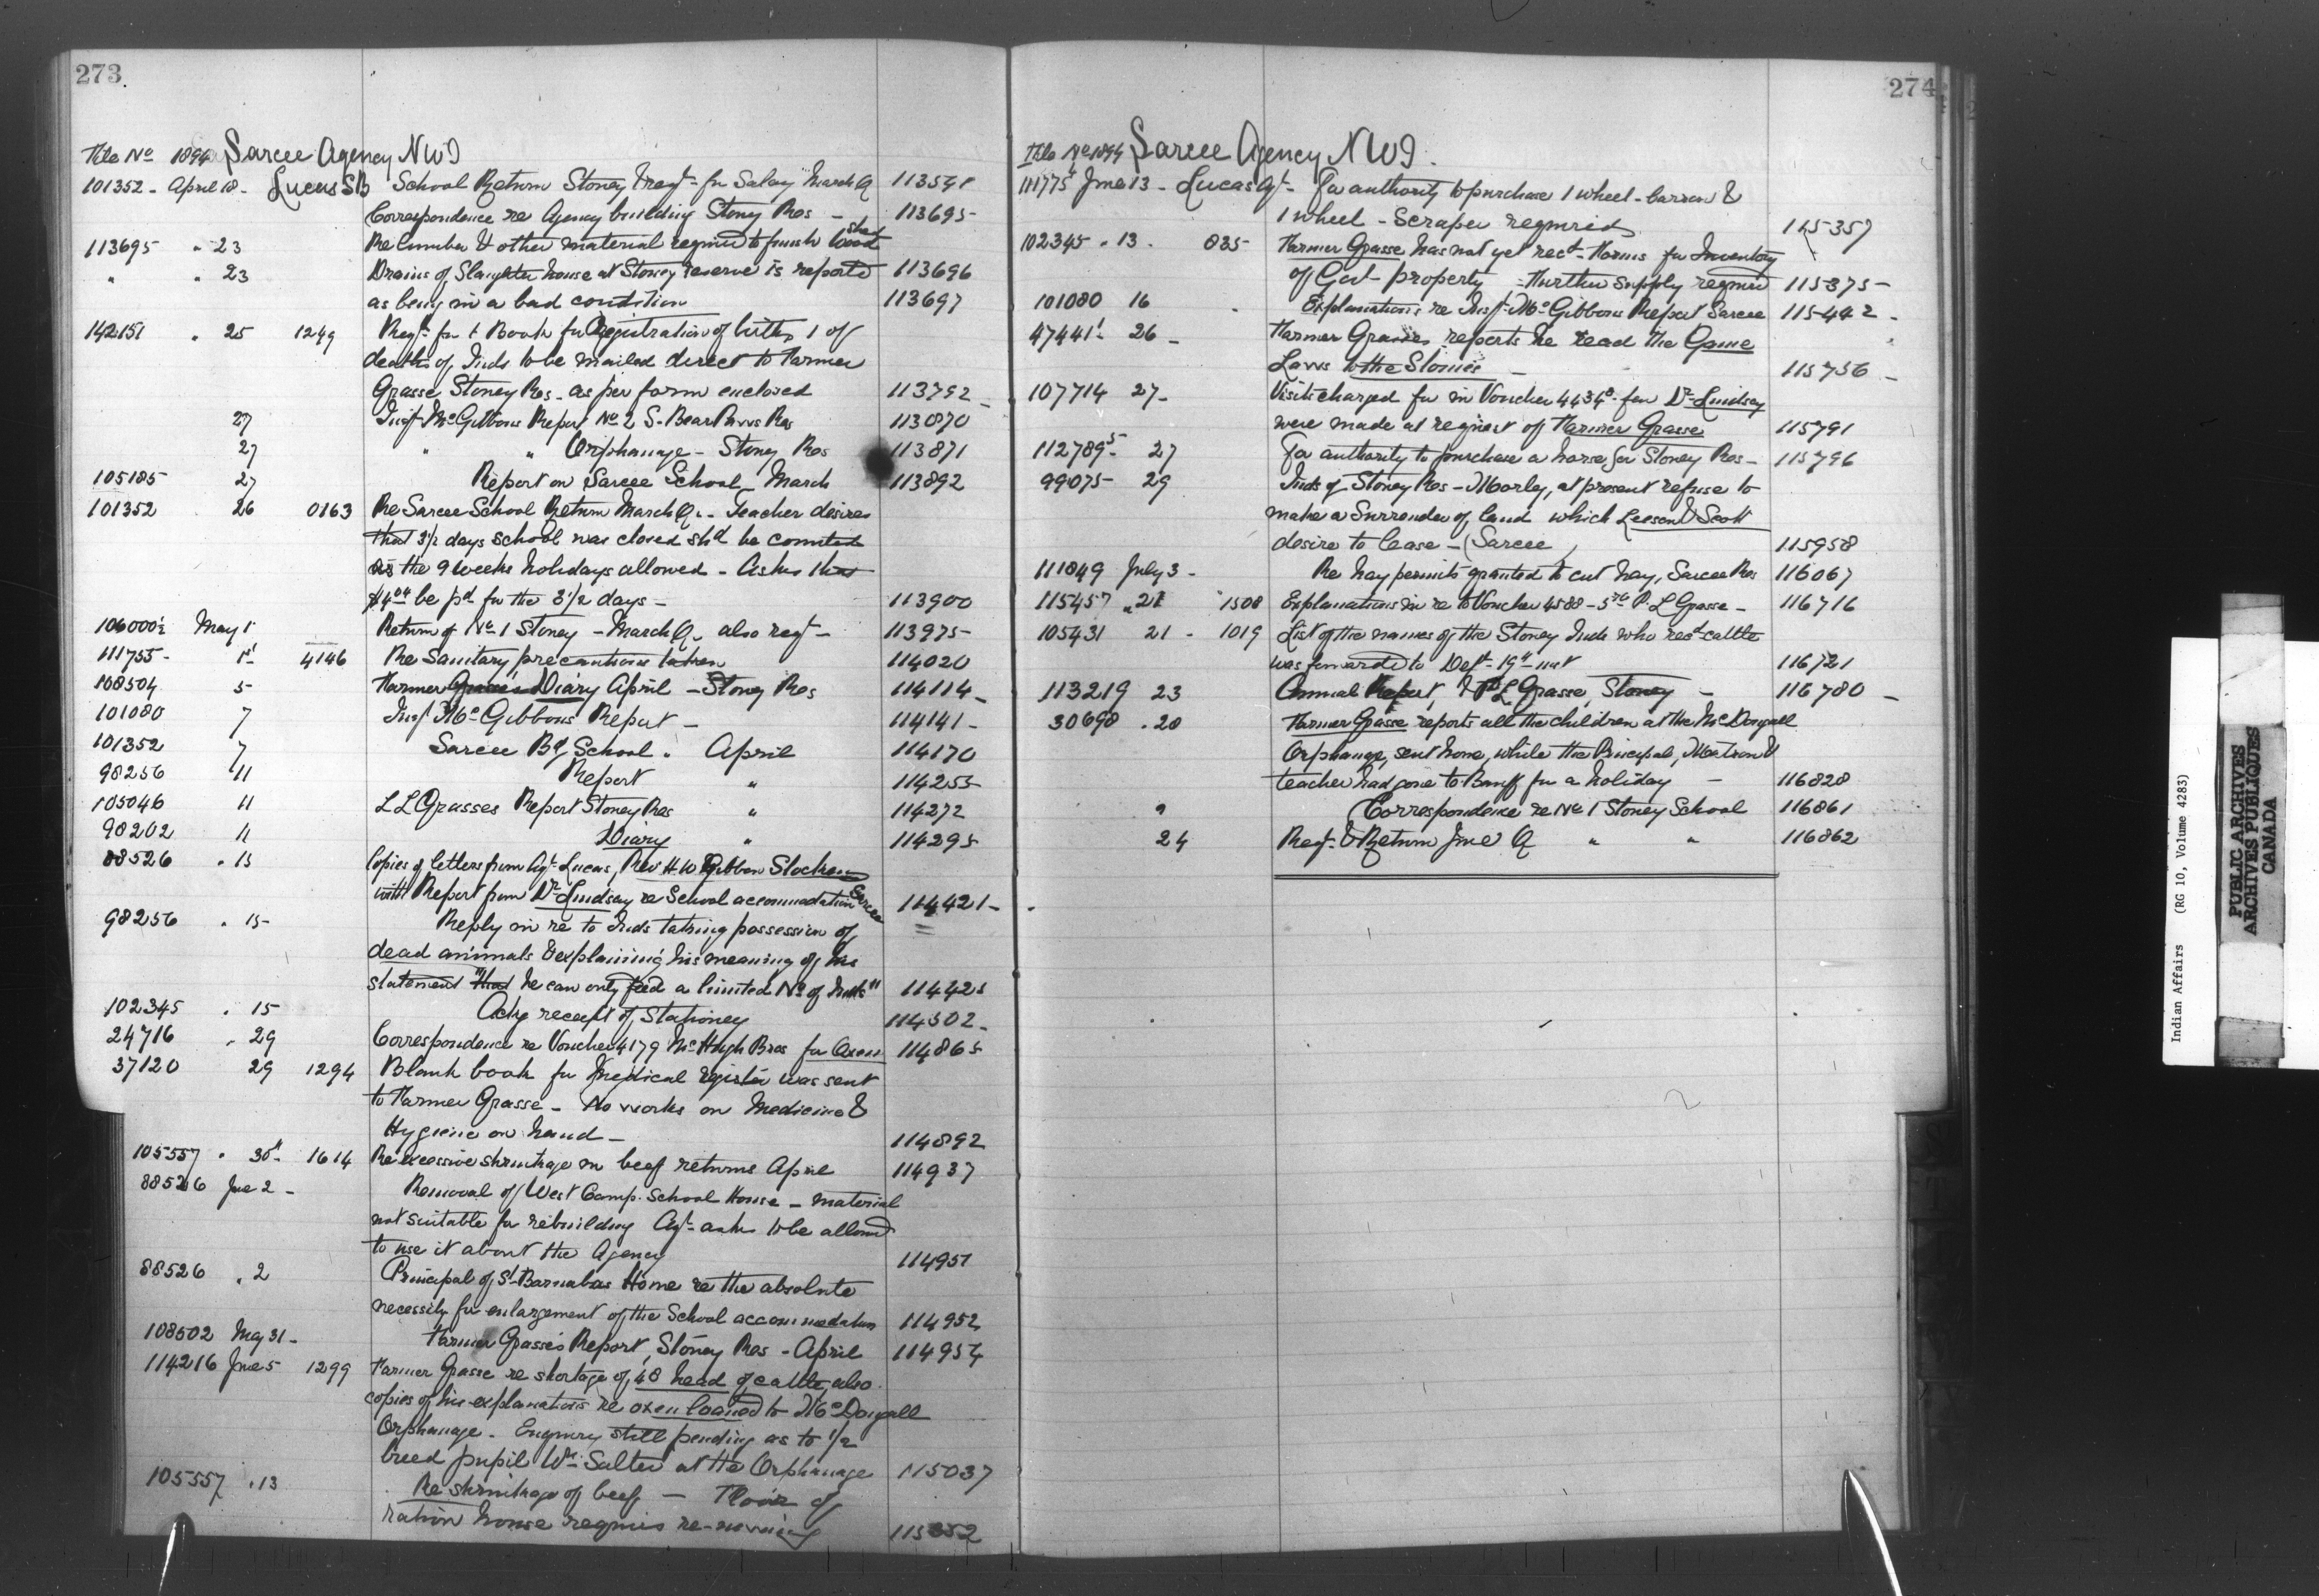 273
File No 1894 Sarcee Agency NWT
101352 - April 18 - Lucas SB School Return Stoney & reqt - for Salary March Q 113541
Correspondence re Agency building Stoney Res - 113695
113695 " 23 Re lumber & other material required to finish Wood Shed
" " 23 Drains of Slaughter house at Stoney reserve is reported 113696
as being in a bad condition 113697
142151 " 25 1249 Reqt for 1 Book for Registration of births, 1 of
deaths of Inds to be mailed direct to Farmer
Grasse Stoney Res - as per form enclosed 113792
27 Insp McGibbons Report No 2 S. Bear Paws Res 113870
27 " " Orphanage - Stoney Res 113871
105185 27 Report on Sarcee School March 113892
101352 26 0163 Re Sarcee School Return March Q. - Teacher desires
that 3½ days school was closed shd be counted
as the 9 weeks holidays allowed - Asks that
be pd for the 3½ days - 113900
106000½ May 1 Return of No 1 Stoney - March Q, also reqt - 113975
111755 - 1st 4146 Re Sanitary precautions taken 114020
108504 5 Farmer Grasse's Diary April - Stoney Res 114114
101080 7 Insp McGibbons Report - 114141 -
101352 7 Sarcee Bg School " April 114170
98256 11 Report " 114255
105046 11 L L Grasses Report Stoney Res " 114272
98202 11 Diary " 114295
88526 " 15 Copies of letters from Agt Lucas, Rev H. W Gibbon Stocken
with Report from Dr Lindsay re School accommodation Sarcee 114421 -
98256 " 15 Reply in re to Inds taking possession of
dead animals & explaining his meaning of his
statement "that he can only feed a limited No of Inds" 114425
102345 " 15 Ackg receipt of Stationery 114502 -
24716 " 29 Correspondence re Voucher 4179 McHugh Bros for Oxen 114865
37120 29 1294 Blank book for Medical register was sent
to Farmer Grasse - No works on Medicine &
Hygiene on hand - 114892
105557 " 30th 1614 Re excessive shrinkage in beef returns April 114937
88526 June 2 - Removal of West Camp School House - material
not suitable for rebuilding Agt asks to be allowed
to use it about the Agency 114951
88526 " 2 Principal of St Barnabas Home re the absolute
necessity for enlargement of the School accommodation 114952
108502 May 31 - Farmer Grasse's Report, Stoney Res - April 114954
114216 June 5 1299 Farmer Grasse re shortage of 48 head of cattle, also
copies of his explanations re oxen loaned to McDougall
Orphanage - Enquiry still pending as to ½
breed pupil Wm Salter at the Orphanage 115037
105557 " 13 Re shrinkage of beef - Floor of
ration house requires re-newing 115352
274
File No 1894 Sarcee Agency NWT.
111775 June 13 - Lucas Agt - For authority to purchase 1 wheel-barrow &
1 wheel-scraper required 115357
102345 " 13 - 835 Farmer Grasse has not yet recd forms for Inventory
of Govt property - Further supply required 115375 -
101080 16 Explanations re Insp McGibbons Report Sarcee 115442 -
47441 26 - Farmer Grasse reports he read the Game
Laws to the Stonies - 115756 -
107714 27 - Visits charged for in Voucher 4434 for Dr Lindsay
were made at request of Farmer Grasse 115791
112789 - 27 For authority to purchase a horse for Stoney Res - 115796
99075 - 29 Inds of Stoney Res - Morley, at present refuse to
make a Surrender of land which Leeson & Scott
desire to lease - (Sarcee) 115958
111849 July 3 - Re hay permits granted to cut hay, Sarcee Res 116067
115457 " 21 1508 Explanations in re to Voucher 4588 - P. L Grasse - 116716
105431 21 - 1019 List of the names of the Stoney Inds who recd cattle
was forwarded to Dept - 19th inst 116721
113219 23 Annual Report, P L Grasse, Stoney - 116780 -
30698 " 20 Farmer Grasse reports all the children at the McDougall
Orphanage, sent home, while the Principal, Matron &
teacher had gone to Banff for a holiday - 116828
" Correspondence re No 1 Stoney School 116861
24 Reqt & Return June Q " " 116862
Indian Affairs (RG 10, Volume 4283)
PUBLIC ARCHIVES
ARCHIVES PUBLIQUES
CANADA